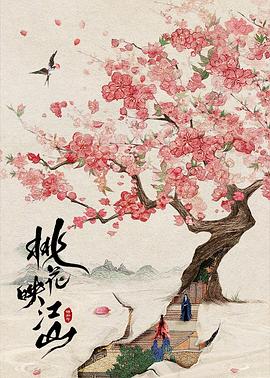 桃花映江山